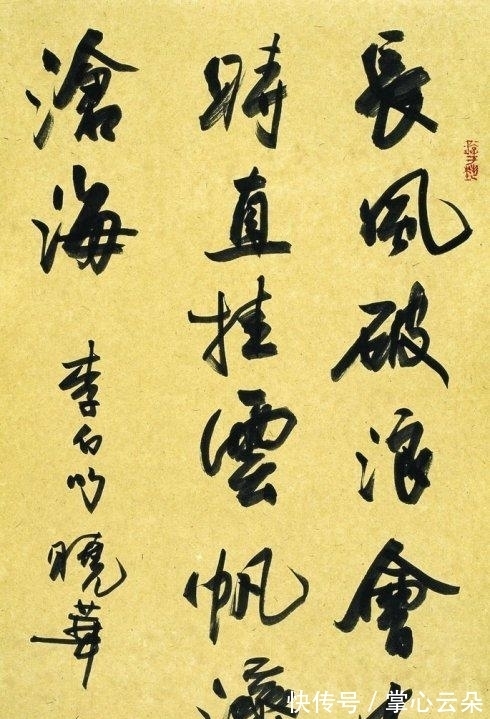 長風破浪會
時直挂雲帆濟
滄海
李白句
曉華
快传号/掌心云朵